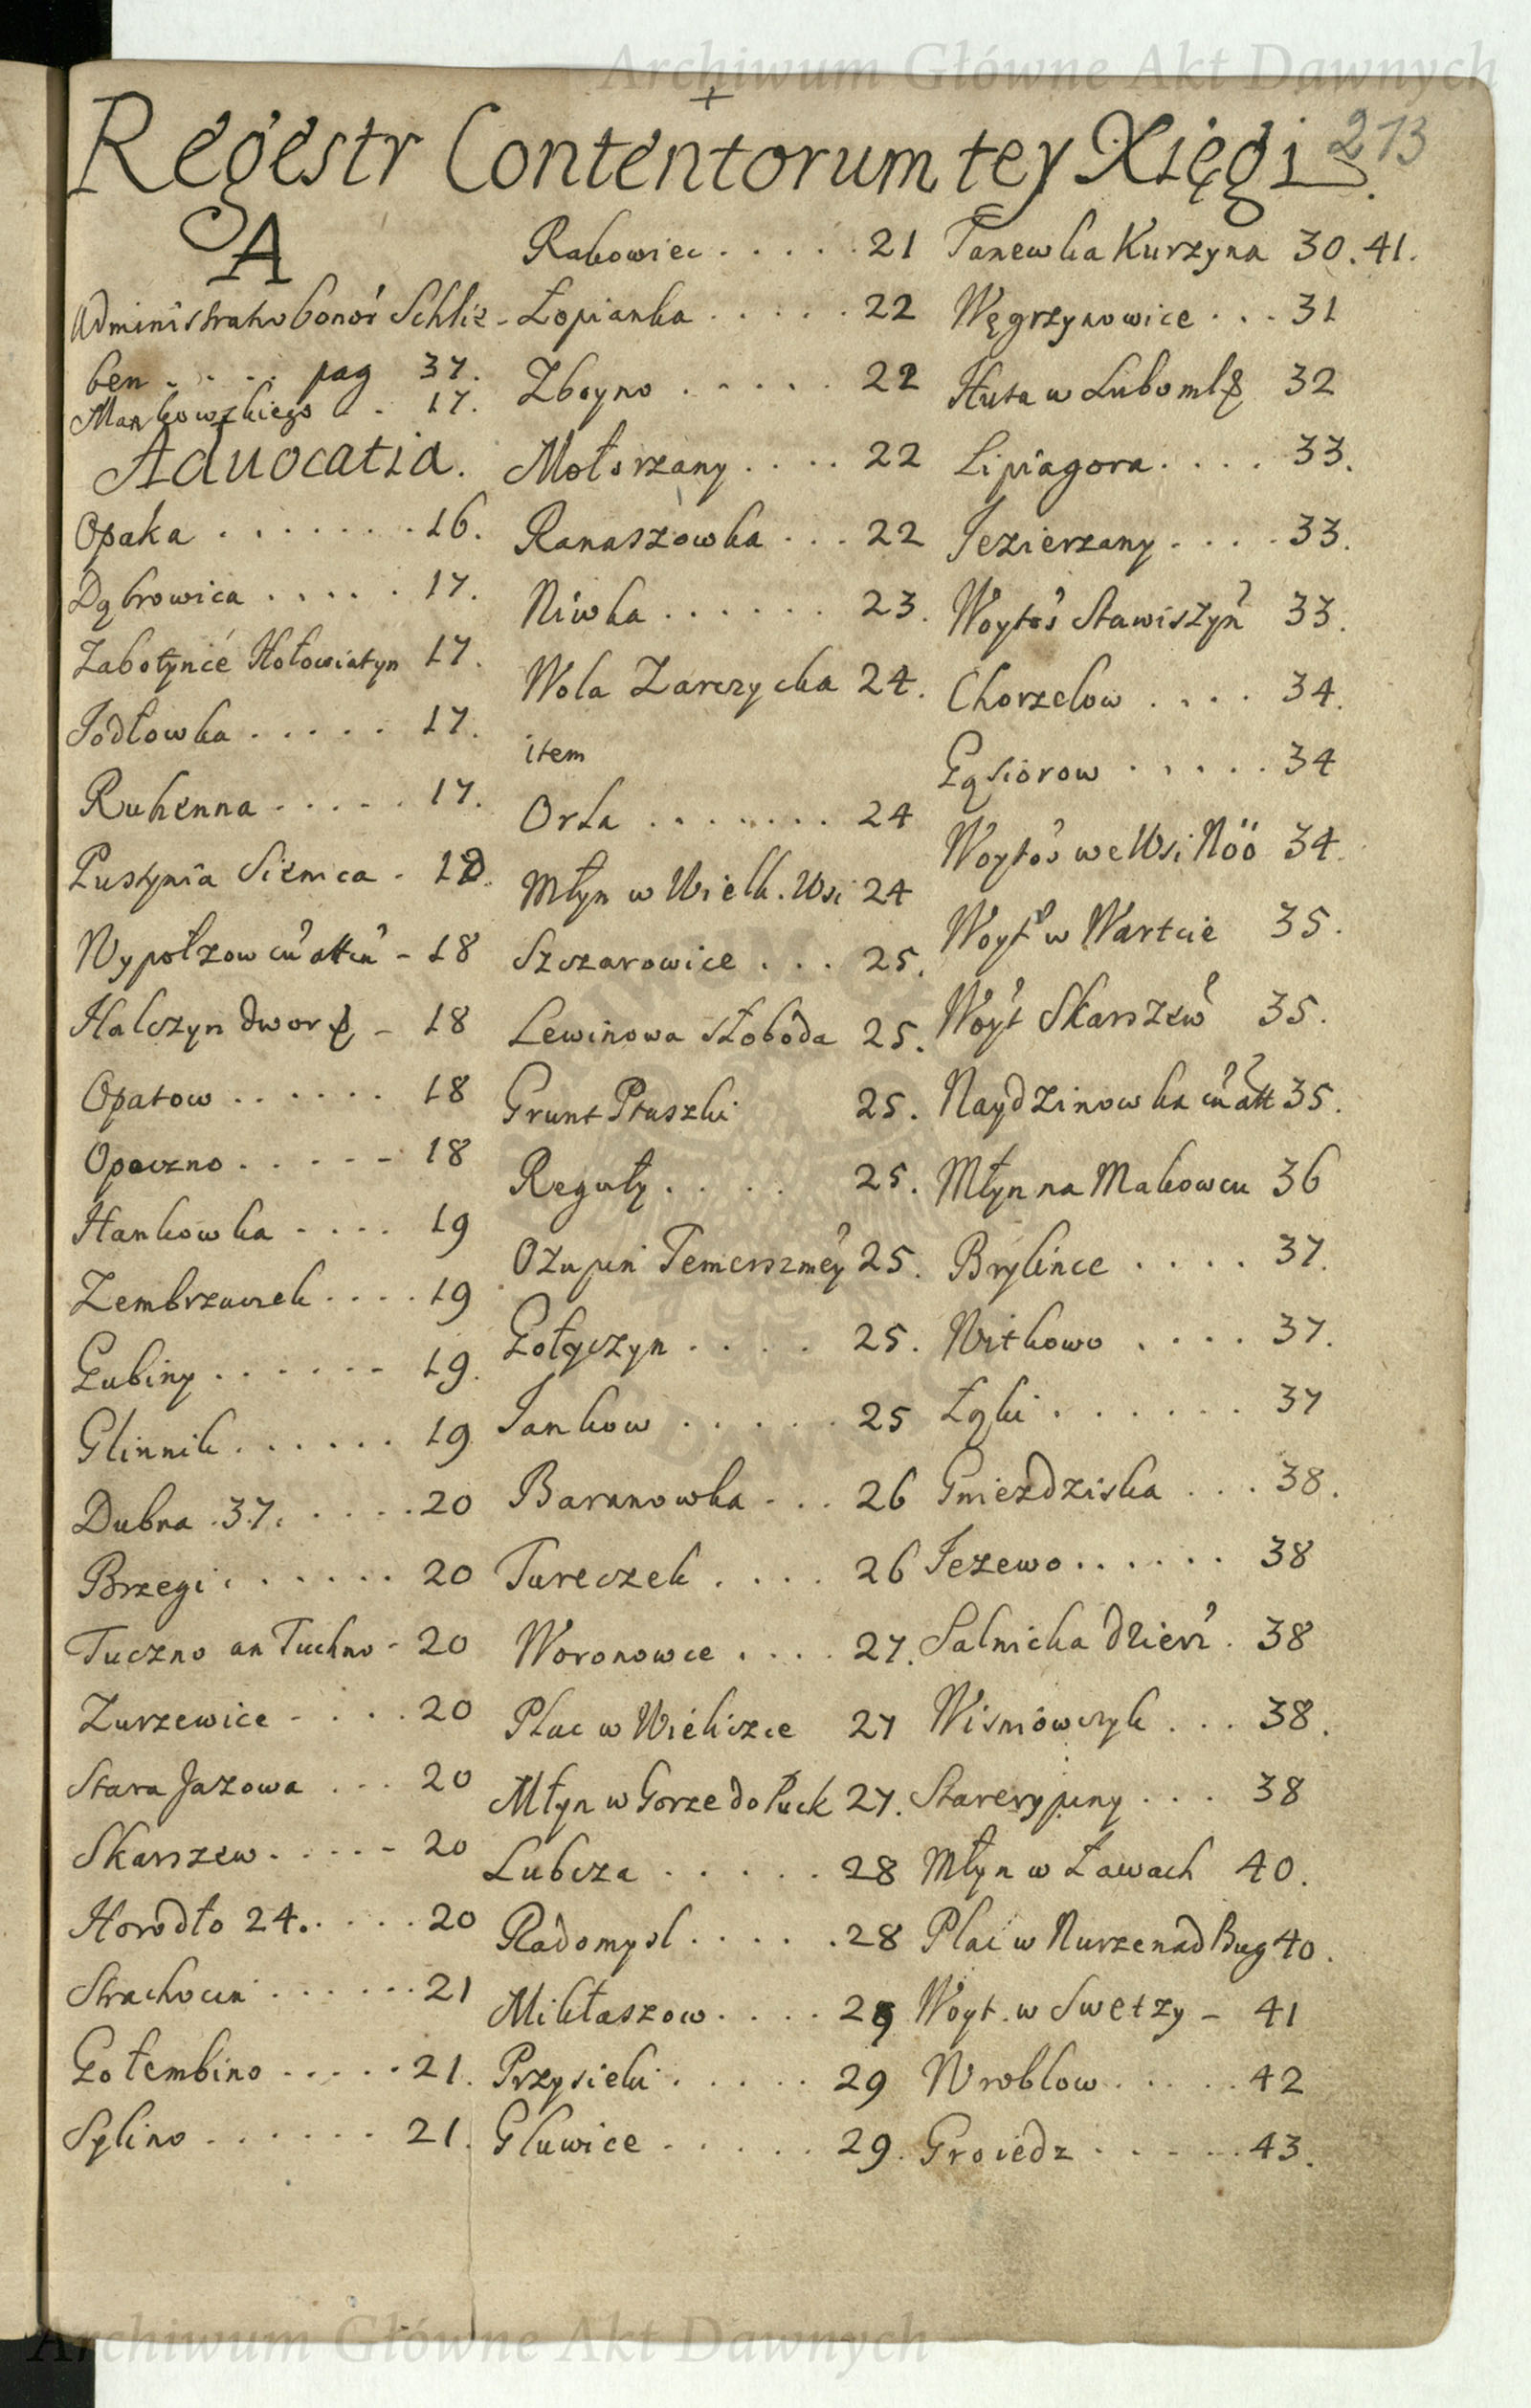 Archiwum Główne Akt Dawnych
Regestr Contentorum tey Xięgi
213
A
Administratio bonoŕ Schliz-
ben . . . . pag 37.
Mankowskiego . . 17.
Advocatia.
Opaka . . . . . . . 16.
Dąbrowica . . . . . 17.
Zabotynce Hołowiatyn 17.
Jodłowka . . . . . 17.
Ruhenna . . . . . 17.
Pustynia Siennica .
Wypołzow cu att - 18
Halczyn dwor - 18
Opatow . . . . . . 18
Opoczno . . . . . - 18
Hankowka - . . . 19
Zembrzusek . . . . 19
Gubiny . . . . . - 19.
Glinnik . . . . . . 19
Dubna .37. . . . . 20
Brzegi . . . . . . . 20
Tuczno an Tuchno - 20
Zurzewice - . . . 20
Stara Jazowa . . . 20
Skarszew . . . . - 20
Horodło 24. . . . . 20
Strachocin . . . . . . 21
Gołembino . . . . . 21.
Sylino . . . . . . . 21.
Rakowiec . . . . . 21
Łopianka . . . . . 22
Zboyno . . . . . 22
Mołorzany . . . . 22
Ranaszowka . . . 22
Niwka . . . . . . 23.
Wola Zarczycka 24.
item
Orla . . . . . . . 24
Młyn w Wielk. Wsi 24
Szczarowice . . . 25.
Lewinowa słoboda 25.
Grunt Ptaszki 25.
Reguły . . . . 25.
Ozupin Temerszmey 25.
Gołyczyn . . . . 25.
Jankow . . . . . 25
Baranowka . . . 26
Tureczek . . . . 26
Woronowce . . . . 27.
Plac w Wieliczce 27
Młyn w Gorze do Puck 27.
Lubcza . . . . . 28
Radomysl . . . . . 28
Mikłaszow . . . . 29
Przysieki . . . . . 29
Gluwice . . . . . 29.
Tanewka Kurzyna 30. 41.
Węgrzynowice . . . 31
Huta w Luboml 32
Lipiagora . . . . 33.
Jezierzany . . . . 33.
Woytos Stawiszyn 33.
Chorzelow . . . . 34.
Gąsiorow . . . . . 34
Woytos we Wsi Nöö 34.
Woyt w Wartcie 35.
Woyt Skarszew 35.
Naydzinowka cu att 35.
Młyn na Makowcu 36
Brylince . . . . 37.
Witkowo . . . . 37.
Łąki . . . . . . 37
Gniezdziska . . . 38.
Jezewo . . . . . . 38
Salnicka dzierz . 38
Wisniowczyk . . . 38.
Starerypiny . . . 38
Młyn w Ławach 40.
Plac w Nurze nad Bug 40.
Woyt. w Swetzy - 41
Wroblow . . . . . 42
Groiedz . . . . . 43.
Archiwum Główne Akt Dawnych